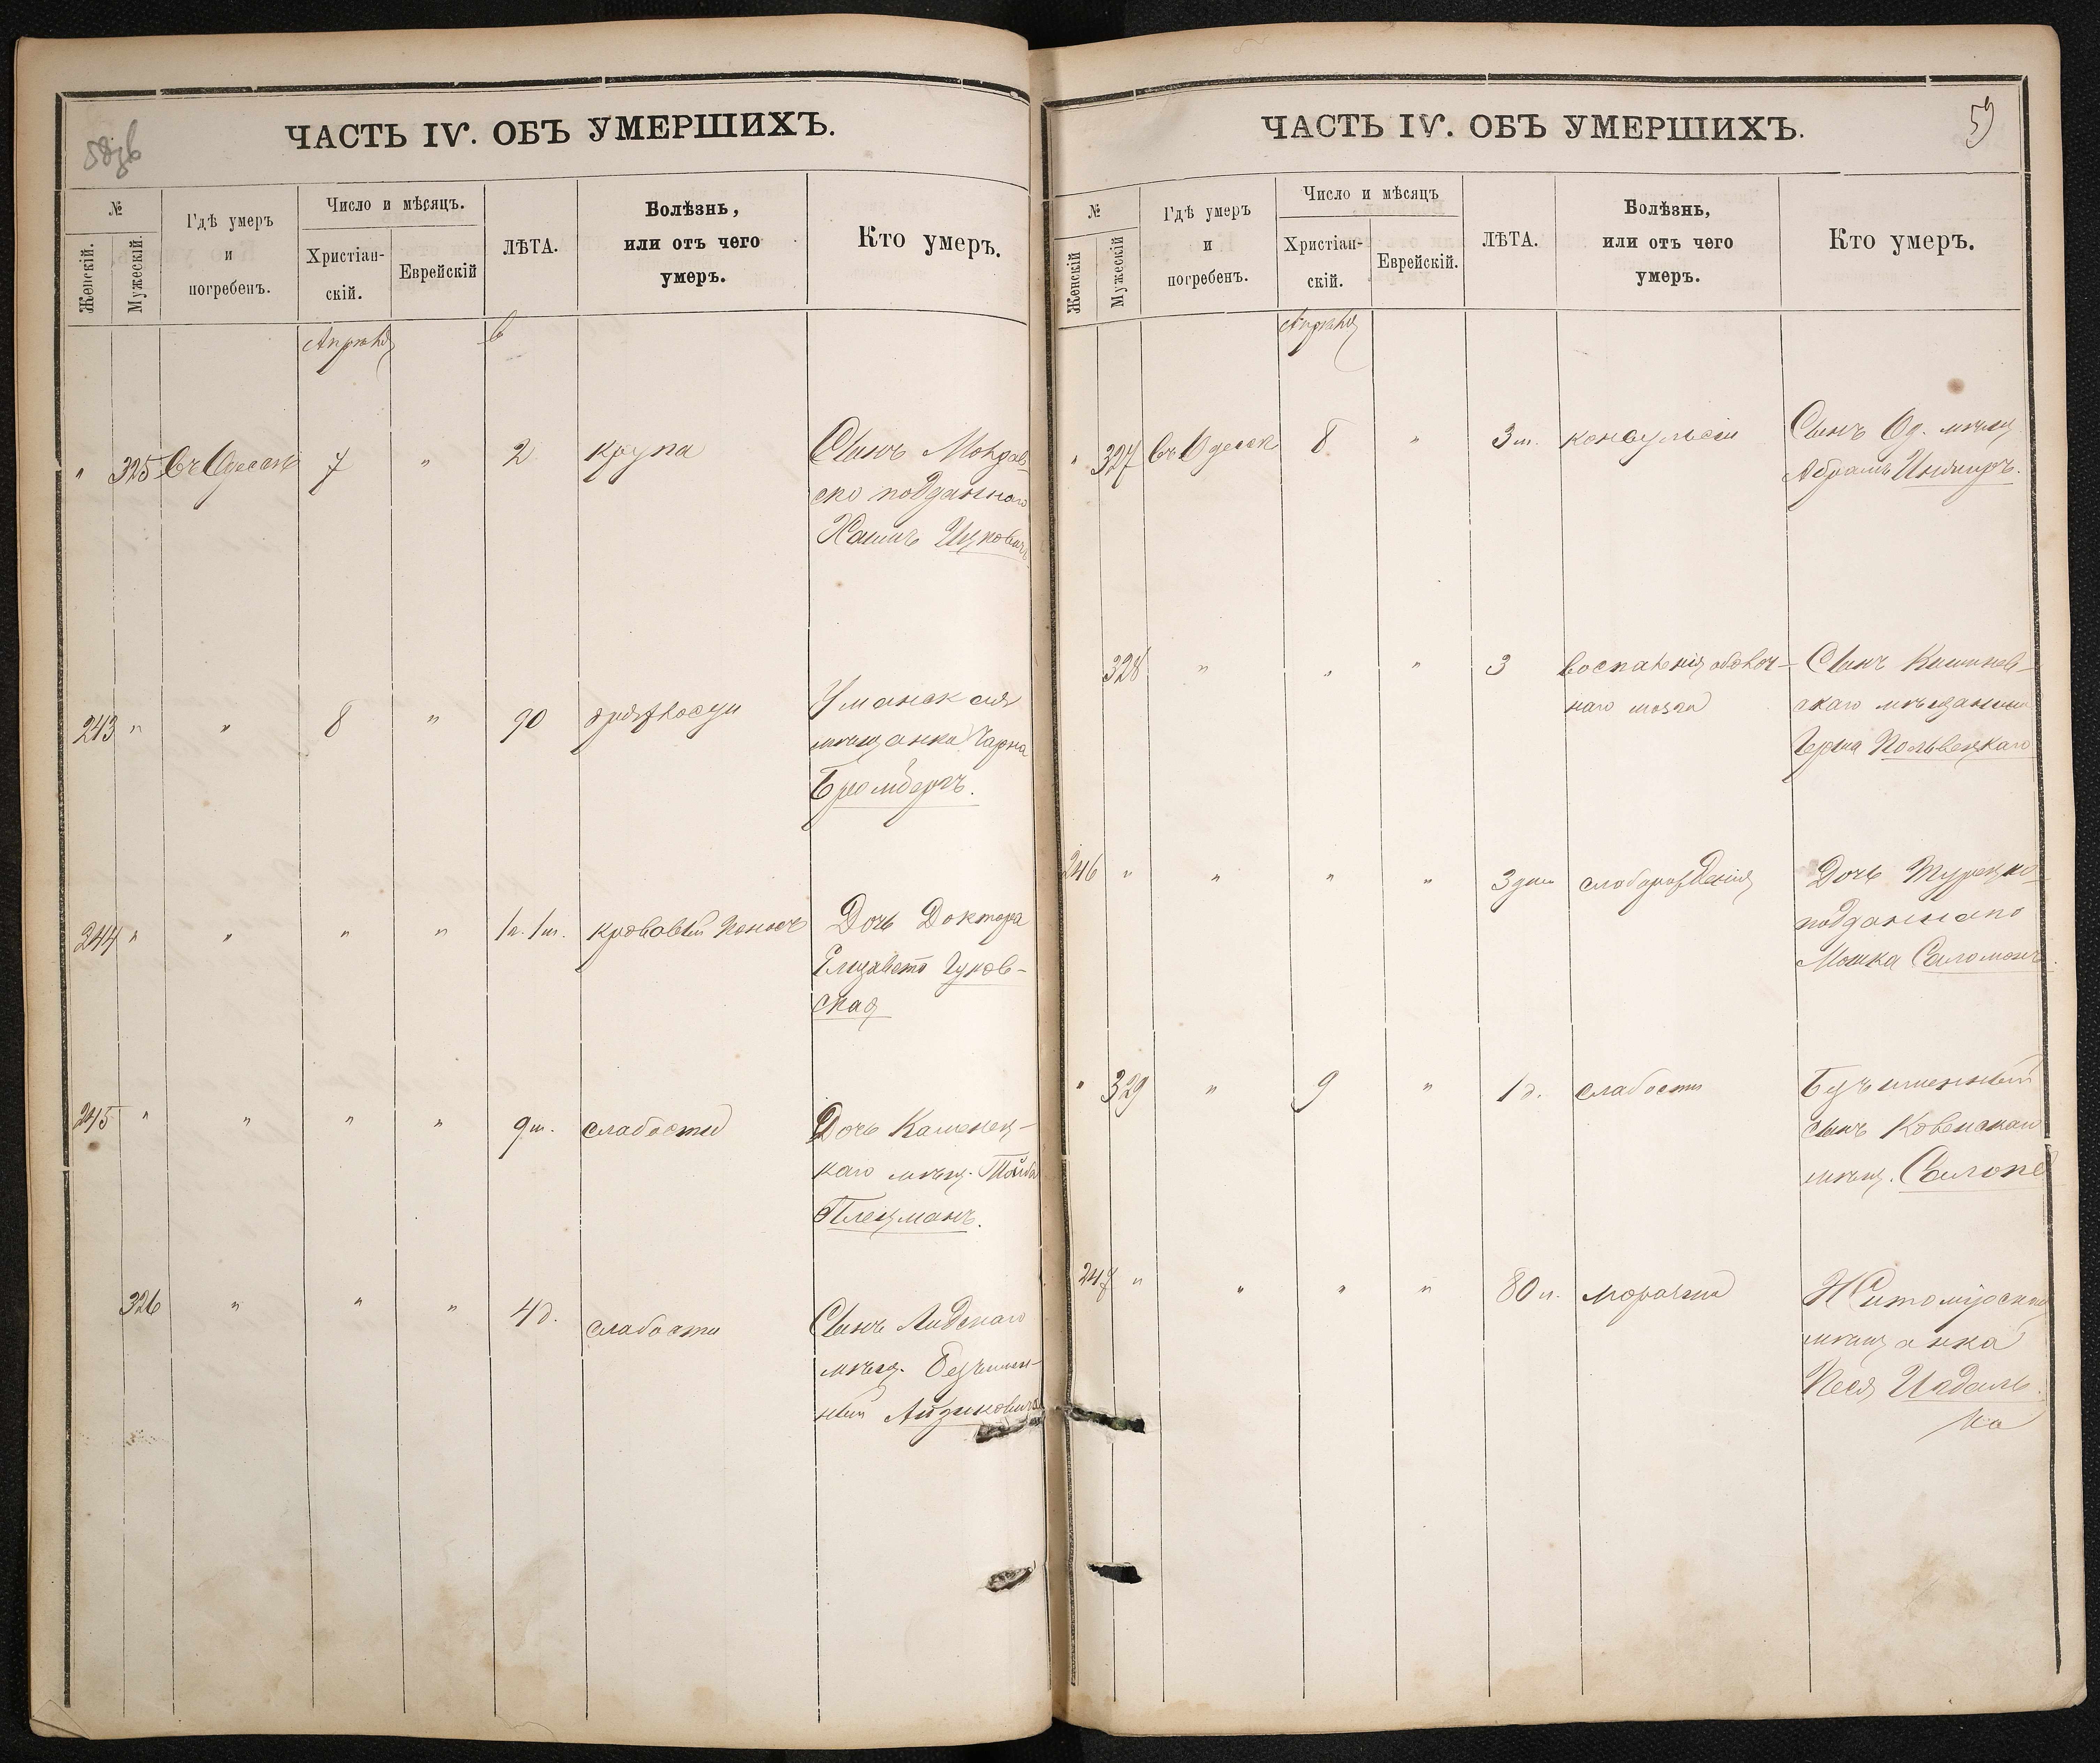 58зв
ЧАСТЬ IV. ОБЪ УМЕРШИХЪ.
№
Женскій.
Мужескій.
Гдѣ умеръ
и
погребенъ.
Число и мѣсяцъ.
Христіан-
скій.
Еврейскій
ЛѢТА.
Болѣзнь,
или отъ чего
умеръ.
Кто умеръ.
Апрѣля
" 325 Въ Одессѣ 7 " 2 крупа Сынъ Молдав-
ско подданнаго
Хаимъ Ицковичъ
243 " " 8 " 90 дряхлости Уманская
мѣщанка Чарна
Бромбергъ.
244 " " " " 1г. 1м. кровавый поносъ Дочь Доктора
Елизавета Гуков-
ская
245 " " " " 9м. слабости Дочь Каменец-
каго мѣщ. Тойба
Плецманъ.
326 " " " 4д. слабости Сынъ Лидскаго
мѣщ. Безъимян-
ный Айзиковичъ
59
ЧАСТЬ IV. ОБЪ УМЕРШИХЪ.
№
Женскій
Мужескій
Гдѣ умеръ
и
погребенъ.
Число и мѣсяцъ
Христіан-
скій.
Еврейскій.
ЛѢТА.
Болѣзнь,
или отъ чего
умеръ.
Кто умеръ.
Апрѣля
" 327 Въ Одессѣ 8 " 3м. конвульсіи Сынъ Од. мѣщ.
Абрамъ
328 " " " 3 воспаленія оболоч- Сынъ Кишинев-
наго мозга скаго мѣщанина
Герша Польвецкаго
246 " " " " 3 дня слаборожденія Дочь Турецко-
подданнаго
Мошка Соломонъ.
" 329 " 9 " 1д. слабости Безъименный
сынъ Ковенскаго
мѣщ.
247 " " " " 80 л. Житомірская
мѣщанка
Песя
ка